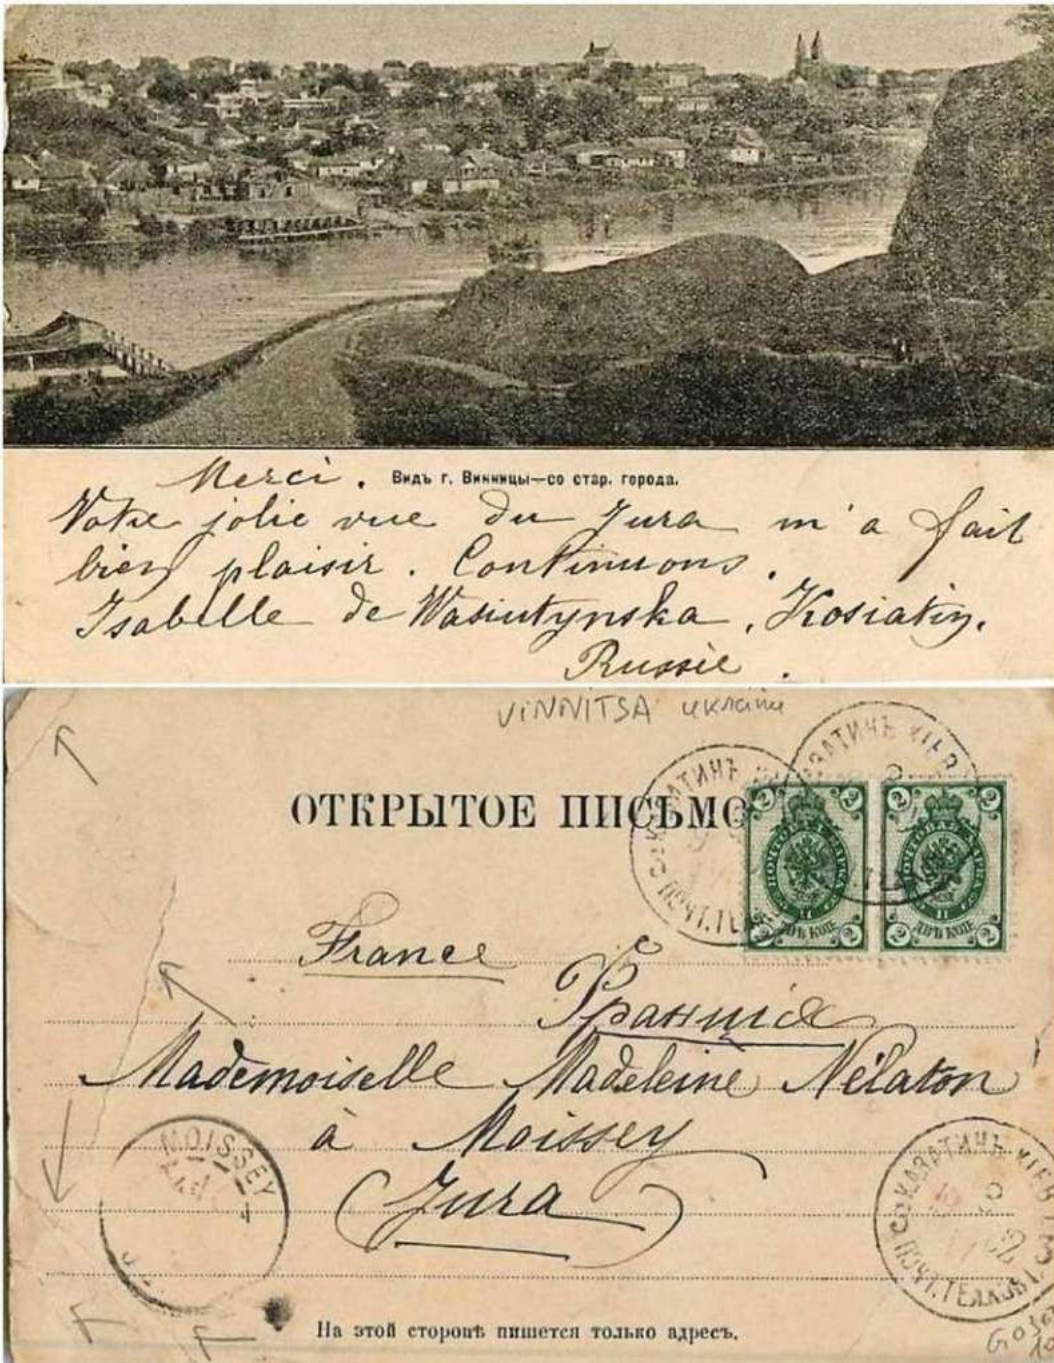 Merci. Видъ г. Винницы—со стар. города.
Votre jolie vue du Jura m'a fait
bien plaisir. Continuons.
Isabelle de Wasiutynska, Kosiatin,
Russie.
VINNITSA Ukraine
ОТКРЫТОЕ ПИСЬМО
2 2 2 2
France
Франція
Mademoiselle Madeleine Nélaton
à Moissey
(Jura)
MOISSEY
КАЗАТИНЪ КІЕВ
ПОЧТ.ТЕЛ
На этой сторонѣ пишется только адресъ.